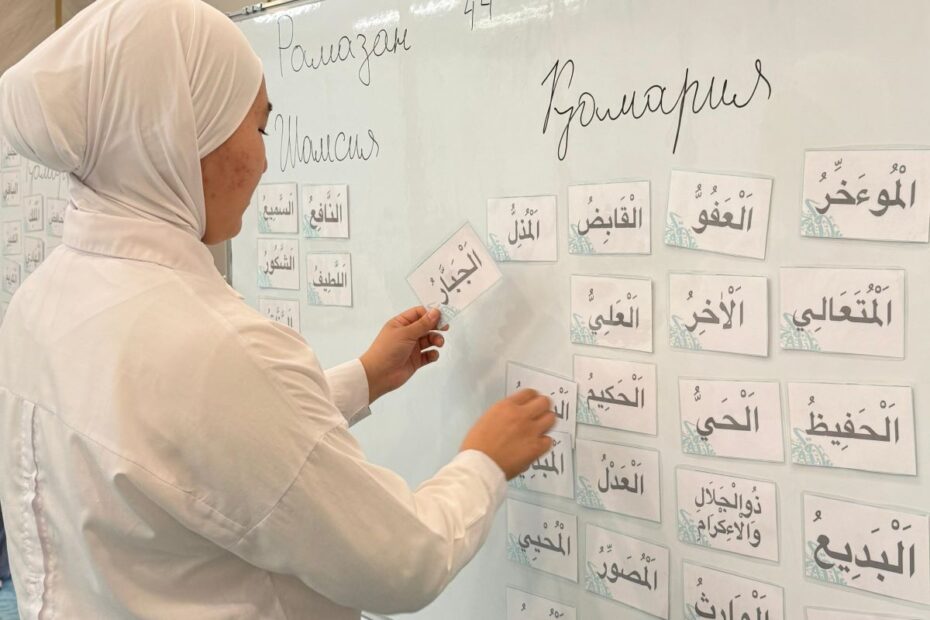 Рамазан
44
Шамсия
Қамария
السَّمِيعُ
النَّافِعُ
الشَّكُورُ
اللَّطِيفُ
اَلْجَبَّارُ
اَلْمُذِلُّ
اَلْقَابِضُ
اَلْعَفُوُّ
اَلْمُوءَخِّرُ
اَلْعَلِيُّ
اَلْاٰخِرُ
اَلْمُتَعَالِي
اَلْحَكِيمُ
اَلْحَيُّ
اَلْحَفِيظُ
اَلْعَدْلُ
ذُوالْجَلَالِ
وَالْاِكْرَامِ
اَلْبَدِيعُ
اَلْمُحْيِي
اَلْمُصَوِّرُ
اَلْوَارِثُ